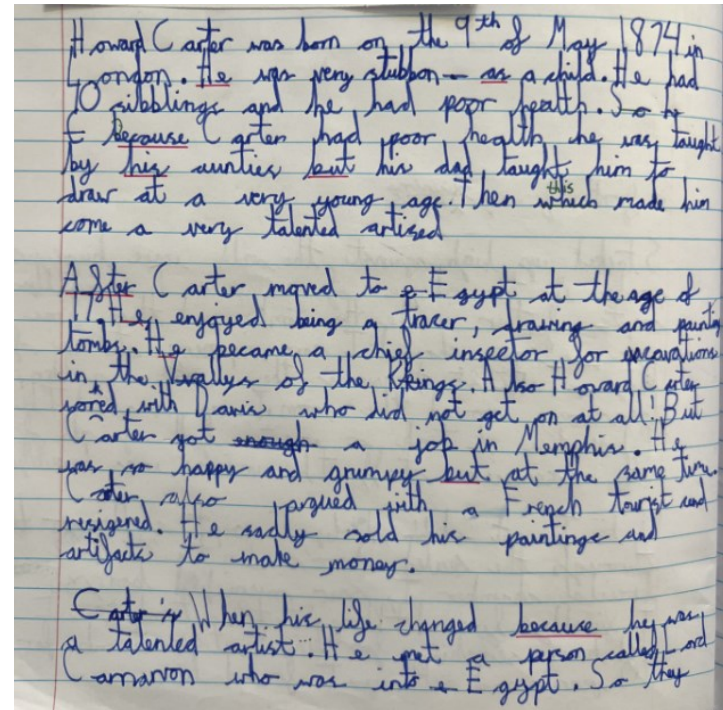 Howard Carter was born on the 9th of May 1874 in
London. He was very stubbon as a child. He had
10 sibblings and he had poor health. So he
Because Carter had poor health he was taught
by his aunties but his dad taught him to
draw at a very young age. Then this which made him
come a very talented artised
After Carter moved to e Egypt at the age of
17. He enjoyed being a tracer, drawing and painting
tombs. He became a chief inspector for excavations
in the Vvallys of the Kkings. Also Howard Carter
with Davis who did not get on at all! But
Carter got enough a job in Memphis. He
was so happy and grumpy but at the same time.
Carter also argued with a French tourist and
resigened. He sadly sold his paintings and
artifacts to make money.
Carter is When his life changed because he was
a talented artist. He met a person called Lord
Carnarvon who was into e Egypt. So they